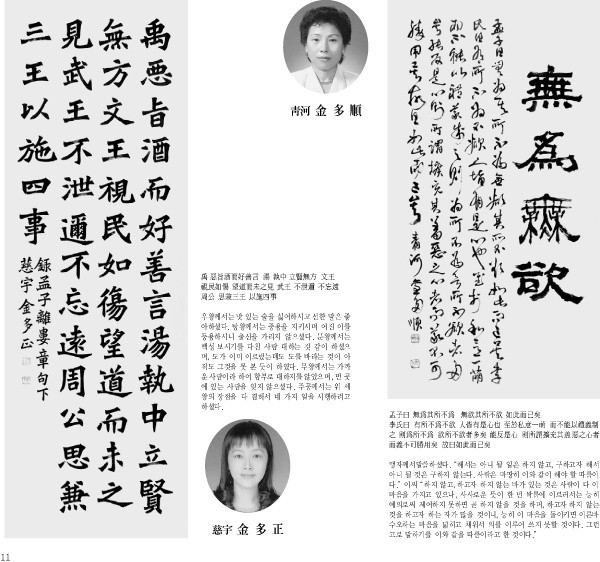 禹惡旨酒而好善言湯執中立賢
無方文王視民如傷望道而未之
見武王不泄邇不忘遠周公思兼
三王以施四事
錄孟子離婁章句下
慈宇金多正
靑河 金多順
禹 惡旨酒而好善言 湯 執中 立賢無方 文王
視民如傷 望道而未之見 武王 不泄邇 不忘遠
周公 思兼三王 以施四事
우왕께서는 맛 있는 술을 싫어하시고 선한 말은 좋
아하셨다. 탕왕께서는 중용을 지키시며 어진 이를
등용하시니 출신을 가리지 않으셨다. 문왕께서는
백성 보시기를 다친 사람 대하는 것 같이 하셨으
며, 도가 이미 이르렀는데도 도를 바라는 것이 아
직도 그것을 못 본 듯이 하였다. 무왕께서는 가까
운 사람이라 하여 함부로 대하지를 않았으며, 먼 곳
에 있는 사람을 잊지 않으셨다. 주공께서는 위 세
왕의 장점을 다 겸해서 네 가지 일을 시행하려고
하셨다.
慈宇 金多正
無爲無欲
孟子曰無為其所不為無欲其所不欲如此而已矣李
氏曰有所不為不欲人皆有是心也至於私意一萌
而不能以禮義制之則為所不為欲所不欲者多
矣能反是心則所謂擴充其羞惡之心者而義不可
勝用矣故曰如此而已矣 青河金多順
孟子曰 無爲其所不爲 無欲其所不欲 如此而已矣
李氏曰 有所不爲不欲 人皆有是心也 至於私意一萌 而不能以禮義制
之 則爲所不爲 欲所不欲者多矣 能反是心 則所謂擴充其羞惡之心者
而義不可勝用矣 故曰如此而已矣
맹자께서말씀하셨다. “해서는 아니 될 일은 하지 않고, 구하고자 해서
아니 될 것은 구하지 않는다. 사람은 마땅히 이와 같이 해야 할 따름이
다.” 이씨 “하지 않고, 하고자 하지 않는 바가 있는 것은 사람이 다 이
마음을 가지고 있으나, 사사로운 뜻이 한 번 싹틈에 이르러서는 능히
예의로써 제어하지 못하면 곧 하지 않을 것을 하며, 하고자 하지 않는
것을 하고자 하는 자가 많을 것이니, 능히 이 마음을 돌이키면 이른바
수오하는 마음을 넓히고 채워서 의를 이루어 쓰지 못할 것이다. 그런
고로 말하기를 이와 같을 따름이라고 한 것이다.”
11